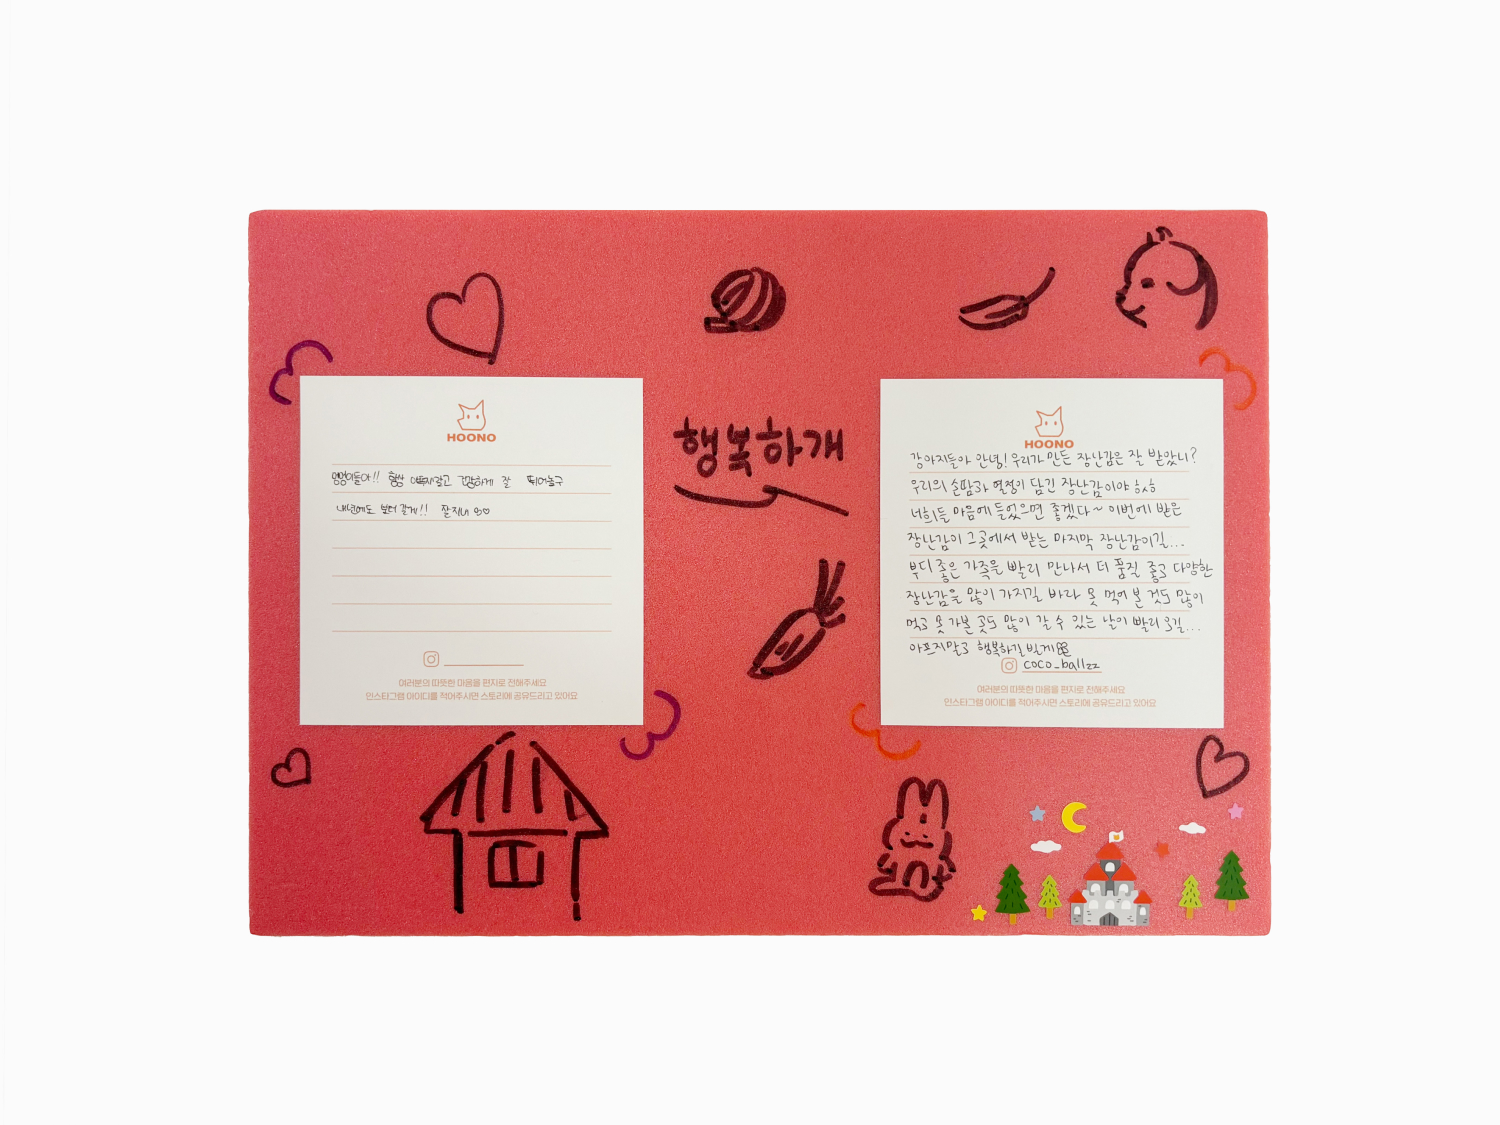 행복하개
HOONO
멍멍이들아!! 항상 아프지말고 건강하게 잘 뛰어놀구
내년에도 보러 갈게!! 잘지내 ㅇㅅㅇ♡
여러분의 따뜻한 마음을 편지로 전해주세요
인스타그램 아이디를 적어주시면 스토리에 공유드리고 있어요
HOONO
강아지들아 안녕! 우리가 만든 장난감은 잘 받았니?
우리의 손땀과 열정이 담긴 장난감이야 ㅎㅅㅎ
너희들 마음에 들었으면 좋겠다~ 이번에 받은
장난감이 그곳에서 받는 마지막 장난감이길...
부디 좋은 가족을 빨리 만나서 더 품질 좋고 다양한
장난감을 많이 가지길 바라 못 먹어 본 것도 많이
먹고 못 가본 곳도 많이 갈 수 있는 날이 빨리 오길...
아프지말고 행복하길 빌게
coco_ballzz
여러분의 따뜻한 마음을 편지로 전해주세요
인스타그램 아이디를 적어주시면 스토리에 공유드리고 있어요